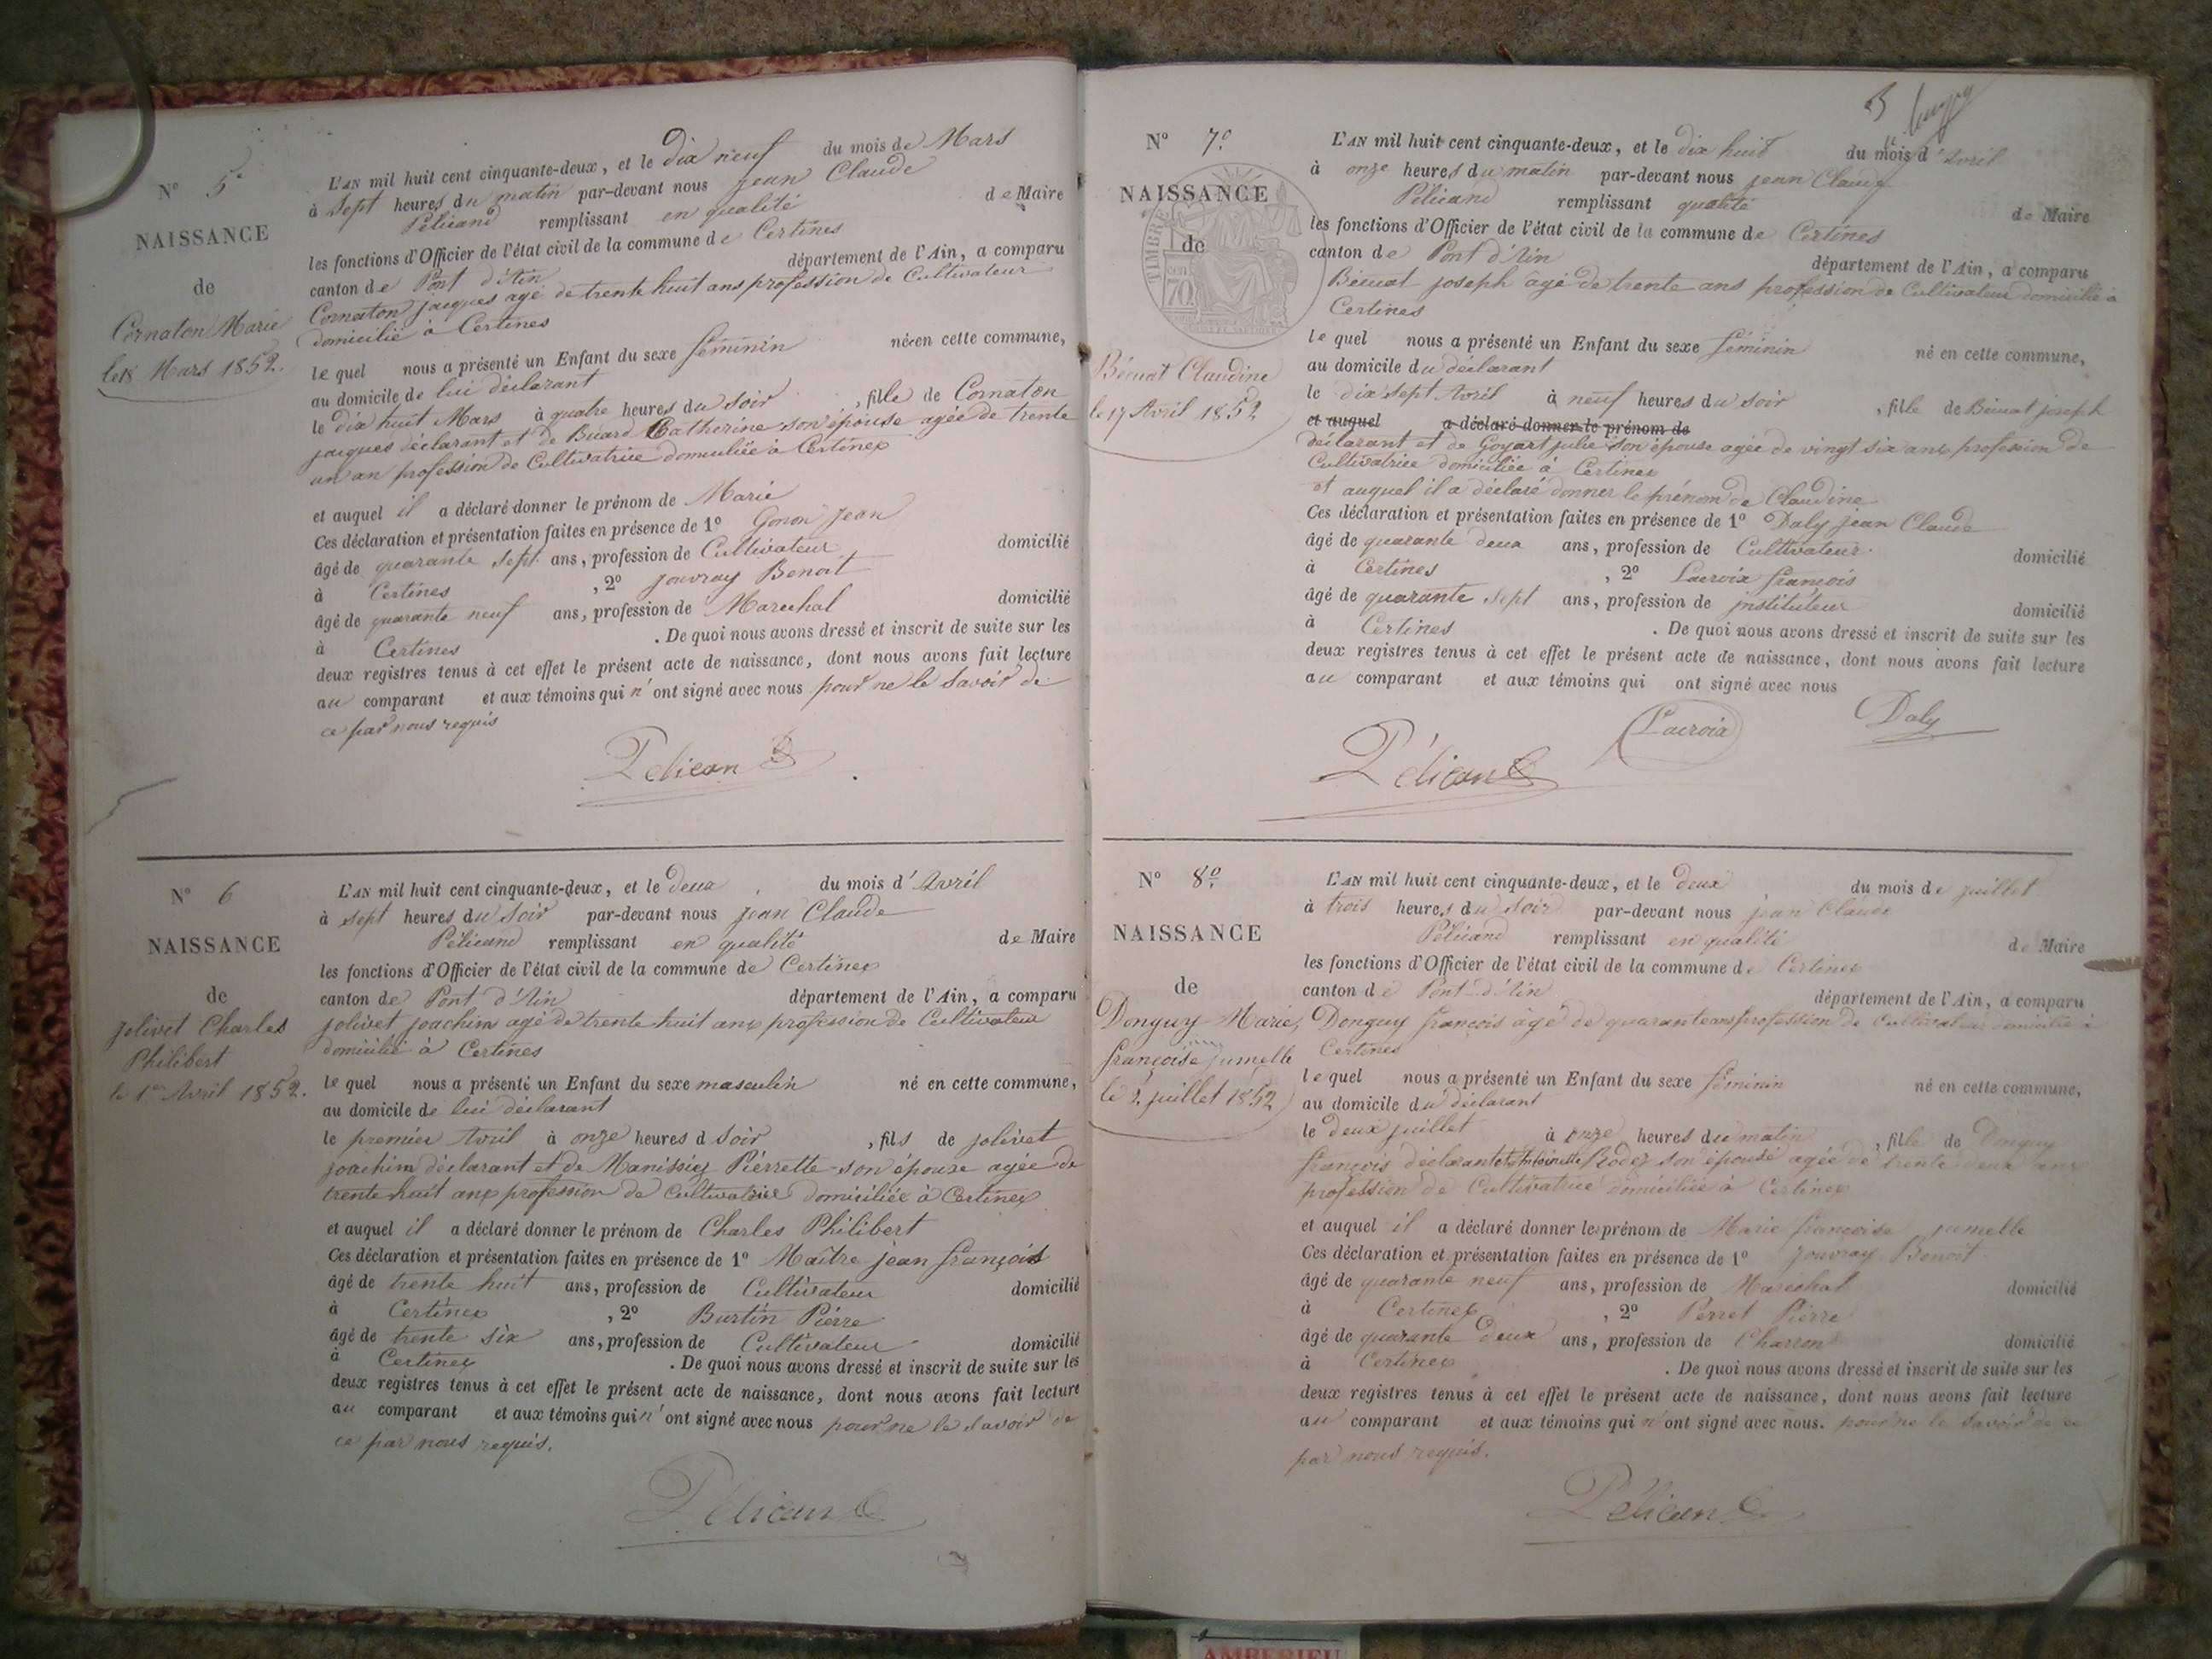 N° 5.
NAISSANCE
de
Cornaton Marie
le 18 Mars 1852.
L'AN mil huit cent cinquante-deux, et le dix neuf du mois de Mars
à sept heures du matin par-devant nous jean Claude
Pélicand remplissant en qualité de Maire
les fonctions d'Officier de l'état civil de la commune de Certines
canton de Pont d'Ain département de l'Ain, a comparu
Cornaton jacques agé de trente huit ans profession de Cultivateur
domicilié à Certines
le quel nous a présenté un Enfant du sexe féminin né en cette commune,
au domicile de lui déclarant
le dix huit Mars à quatre heures du soir, fille de Cornaton
jacques déclarant et de Buard Catherine son épouse agée de trente
un an profession de Cultivatrice domiciliée à Certines
et auquel il a déclaré donner le prénom de Marie
Ces déclaration et présentation faites en présence de 1° Gonon jean
âgé de quarante sept ans, profession de Cultivateur domicilié
à Certines, 2° jouvray Benoit
âgé de quarante neuf ans, profession de Marechal domicilié
à Certines. De quoi nous avons dressé et inscrit de suite sur les
deux registres tenus à cet effet le présent acte de naissance, dont nous avons fait lecture
au comparant et aux témoins qui n'ont signé avec nous pour ne le savoir de
ce par nous requis
Pélicand
N° 6
NAISSANCE
de
jolivet Charles
Philibert
le 1er Avril 1852.
L'AN mil huit cent cinquante-deux, et le deux du mois d'Avril
à sept heures du soir par-devant nous jean Claude
Pélicand remplissant en qualité de Maire
les fonctions d'Officier de l'état civil de la commune de Certines
canton de Pont d'Ain département de l'Ain, a comparu
jolivet joachim agé de trente huit ans profession de Cultivateur
domicilié à Certines
le quel nous a présenté un Enfant du sexe masculin né en cette commune,
au domicile de lui déclarant
le premier Avril à onze heures d soir, fils de jolivet
joachim déclarant et de Manissier Pierrette son épouse agée de
trente huit ans profession de Cultivatrice domiciliée à Certines
et auquel il a déclaré donner le prénom de Charles Philibert
Ces déclaration et présentation faites en présence de 1° Maître jean françois
âgé de trente huit ans, profession de Cultivateur domicilié
à Certines, 2° Burtin Pierre
âgé de trente six ans, profession de Cultivateur domicilié
à Certines. De quoi nous avons dressé et inscrit de suite sur les
deux registres tenus à cet effet le présent acte de naissance, dont nous avons fait lecture
au comparant et aux témoins qui n'ont signé avec nous pour ne le savoir de
ce par nous requis.
Pélicand
N° 7°.
NAISSANCE
de
TIMBRE
70
Bénuat Claudine
le 17 Avril 1852
L'AN mil huit cent cinquante-deux, et le dix huit du mois d'Avril
à onze heures du matin par-devant nous jean Claude
Pélicand remplissant qualité de Maire
les fonctions d'Officier de l'état civil de la commune de Certines
canton de Pont d'Ain département de l'Ain, a comparu
Bénuat joseph âgé de trente ans profession de Cultivateur domicilié à
Certines
le quel nous a présenté un Enfant du sexe féminin né en cette commune,
au domicile du déclarant
le dix sept Avril à neuf heures du soir, fille de Bénuat joseph
et auquel a déclaré donner le prénom de
déclarant et de Goyart julie son épouse agée de vingt six ans profession de
Cultivatrice domiciliée à Certines
et auquel il a déclaré donner le prénom de Claudine
Ces déclaration et présentation faites en présence de 1° Daly jean Claude
âgé de quarante deux ans, profession de Cultivateur. domicilié
à Certines, 2° Lacroix françois
âgé de quarante sept ans, profession de instituteur domicilié
à Certines. De quoi nous avons dressé et inscrit de suite sur les
deux registres tenus à cet effet le présent acte de naissance, dont nous avons fait lecture
au comparant et aux témoins qui ont signé avec nous
Lacroix Daly
Pélicand
N° 8°.
NAISSANCE
de
Donguy Marie,
françoise jumelle
le 2 juillet 1852
L'AN mil huit cent cinquante-deux, et le deux du mois de juillet
à trois heures du soir par-devant nous jean Claude
Pélicand remplissant en qualité de Maire
les fonctions d'Officier de l'état civil de la commune de Certines
canton de Pont d'Ain département de l'Ain, a comparu
Donguy françois âgé de quarante ans profession de Cultivateur domicilié à
Certines
le quel nous a présenté un Enfant du sexe féminin né en cette commune,
au domicile du déclarant
le deux juillet à onze heures du matin, fille de Donguy
françois déclarant et Antoinette Rodet son épouse agée de trente deux ans
profession de Cultivatrice domiciliée à Certines
et auquel il a déclaré donner le prénom de Marie françoise jumelle
Ces déclaration et présentation faites en présence de 1° jouvray Benoit
âgé de quarante neuf ans, profession de Marechal domicilié
à Certines, 2° Perret Pierre
âgé de quarante deux ans, profession de Charron domicilié
à Certines. De quoi nous avons dressé et inscrit de suite sur les
deux registres tenus à cet effet le présent acte de naissance, dont nous avons fait lecture
au comparant et aux témoins qui n'ont signé avec nous. pour ne le savoir de ce
par nous requis.
Pélicand
AMBERIEU